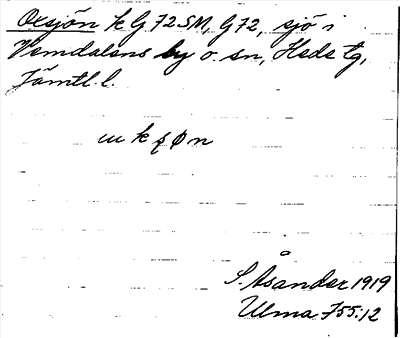 Oxsjön k G. 72 SM, G 72, sjö i
Vemdalens by o. sn, Hede tg,
Jämtl. l.
S. Åsander 1919
Ulma 755:12